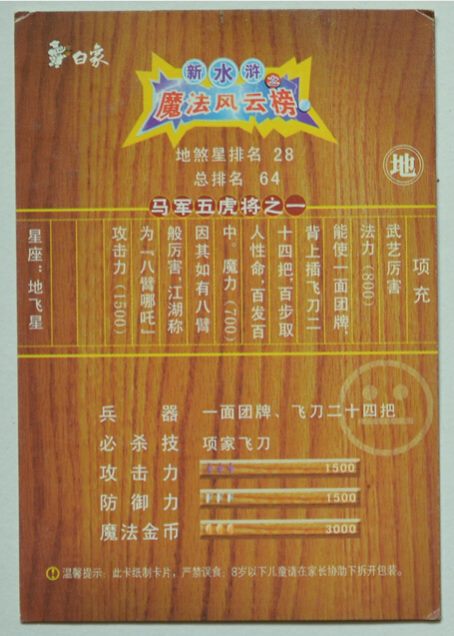 白象
新水浒之
魔法风云榜
地煞星排名 28
总排名 64
地
马军五虎将之一
项充
武艺厉害
法力(800)
能使一面团牌,
背上插飞刀二
十四把,百步取
人性命,百发百
中。魔力(700)
因其如有八臂
般厉害,江湖称
为『八臂哪吒』
攻击力(1500)
星座:地飞星
兵器 一面团牌、飞刀二十四把
必杀技 项家飞刀
攻击力 1500
防御力 1500
魔法金币 3000
温馨提示:此卡纸制卡片,严禁误食,8岁以下儿童请在家长协助下拆开包装。